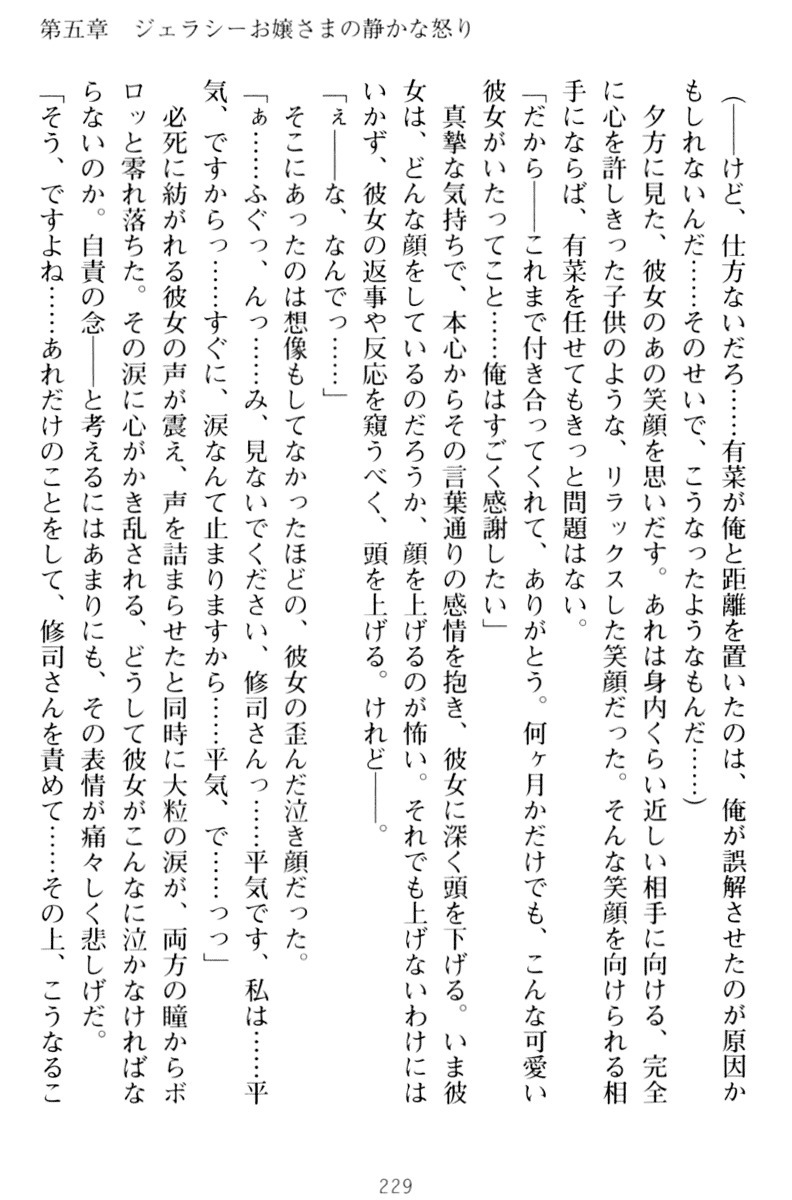 第五章　ジェラシーお嬢さまの静かな怒り
（――けど、仕方ないだろ……有菜が俺と距離を置いたのは、俺が誤解させたのが原因か
もしれないんだ……そのせいで、こうなったようなもんだ……）
　夕方に見た、彼女のあの笑顔を思いだす。あれは身内くらい近しい相手に向ける、完全
に心を許しきった子供のような、リラックスした笑顔だった。そんな笑顔を向けられる相
手にならば、有菜を任せてもきっと問題はない。
「だから――これまで付き合ってくれて、ありがとう。何ヶ月かだけでも、こんな可愛い
彼女がいたってこと……俺はすごく感謝したい」
　真摯な気持ちで、本心からその言葉通りの感情を抱き、彼女に深く頭を下げる。いま彼
女は、どんな顔をしているのだろうか、顔を上げるのが怖い。それでも上げないわけには
いかず、彼女の返事や反応を窺うべく、頭を上げる。けれど――。
「ぇ――な、なんでっ……」
　そこにあったのは想像もしてなかったほどの、彼女の歪んだ泣き顔だった。
「ぁ……ふぐっ、んっ……み、見ないでください、修司さんっ……平気です、私は……平
気、ですからっ……すぐに、涙なんて止まりますから……平気、で……っっ」
　必死に紡がれる彼女の声が震え、声を詰まらせたと同時に大粒の涙が、両方の瞳からボ
ロッと零れ落ちた。その涙に心がかき乱される、どうして彼女がこんなに泣かなければな
らないのか。自責の念――と考えるにはあまりにも、その表情が痛々しく悲しげだ。
「そう、ですよね……あれだけのことをして、修司さんを責めて……その上、こうなるこ
229